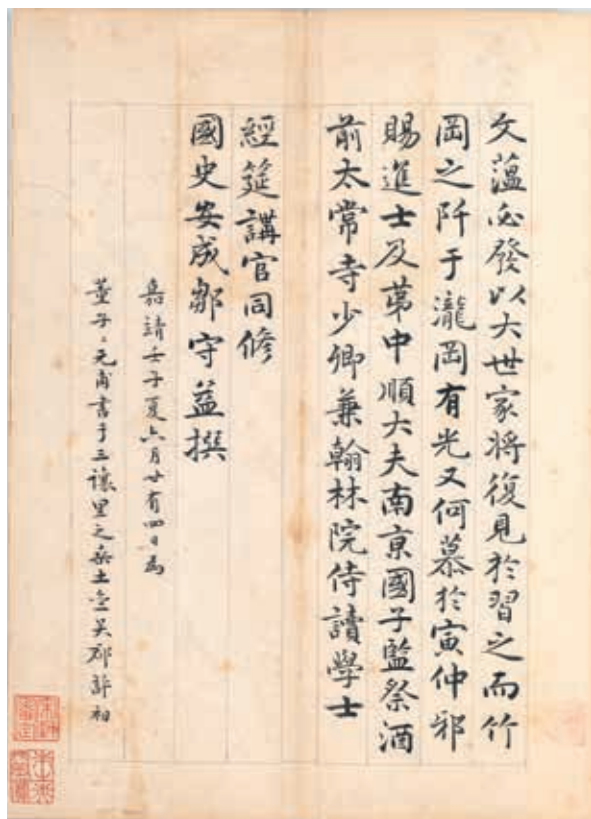 文蘊必發以大世家將復見於習之而竹
岡之阡于瀧岡有光又何慕於寅仲邪
賜進士及第中順大夫南京國子監祭酒
前太常寺少卿兼翰林院侍讀學士
經筵講官同修
國史安成鄒守益撰
嘉靖壬子夏六月廿有四日為
董子〻元甫書于三讓里之桑土 吳郡 初